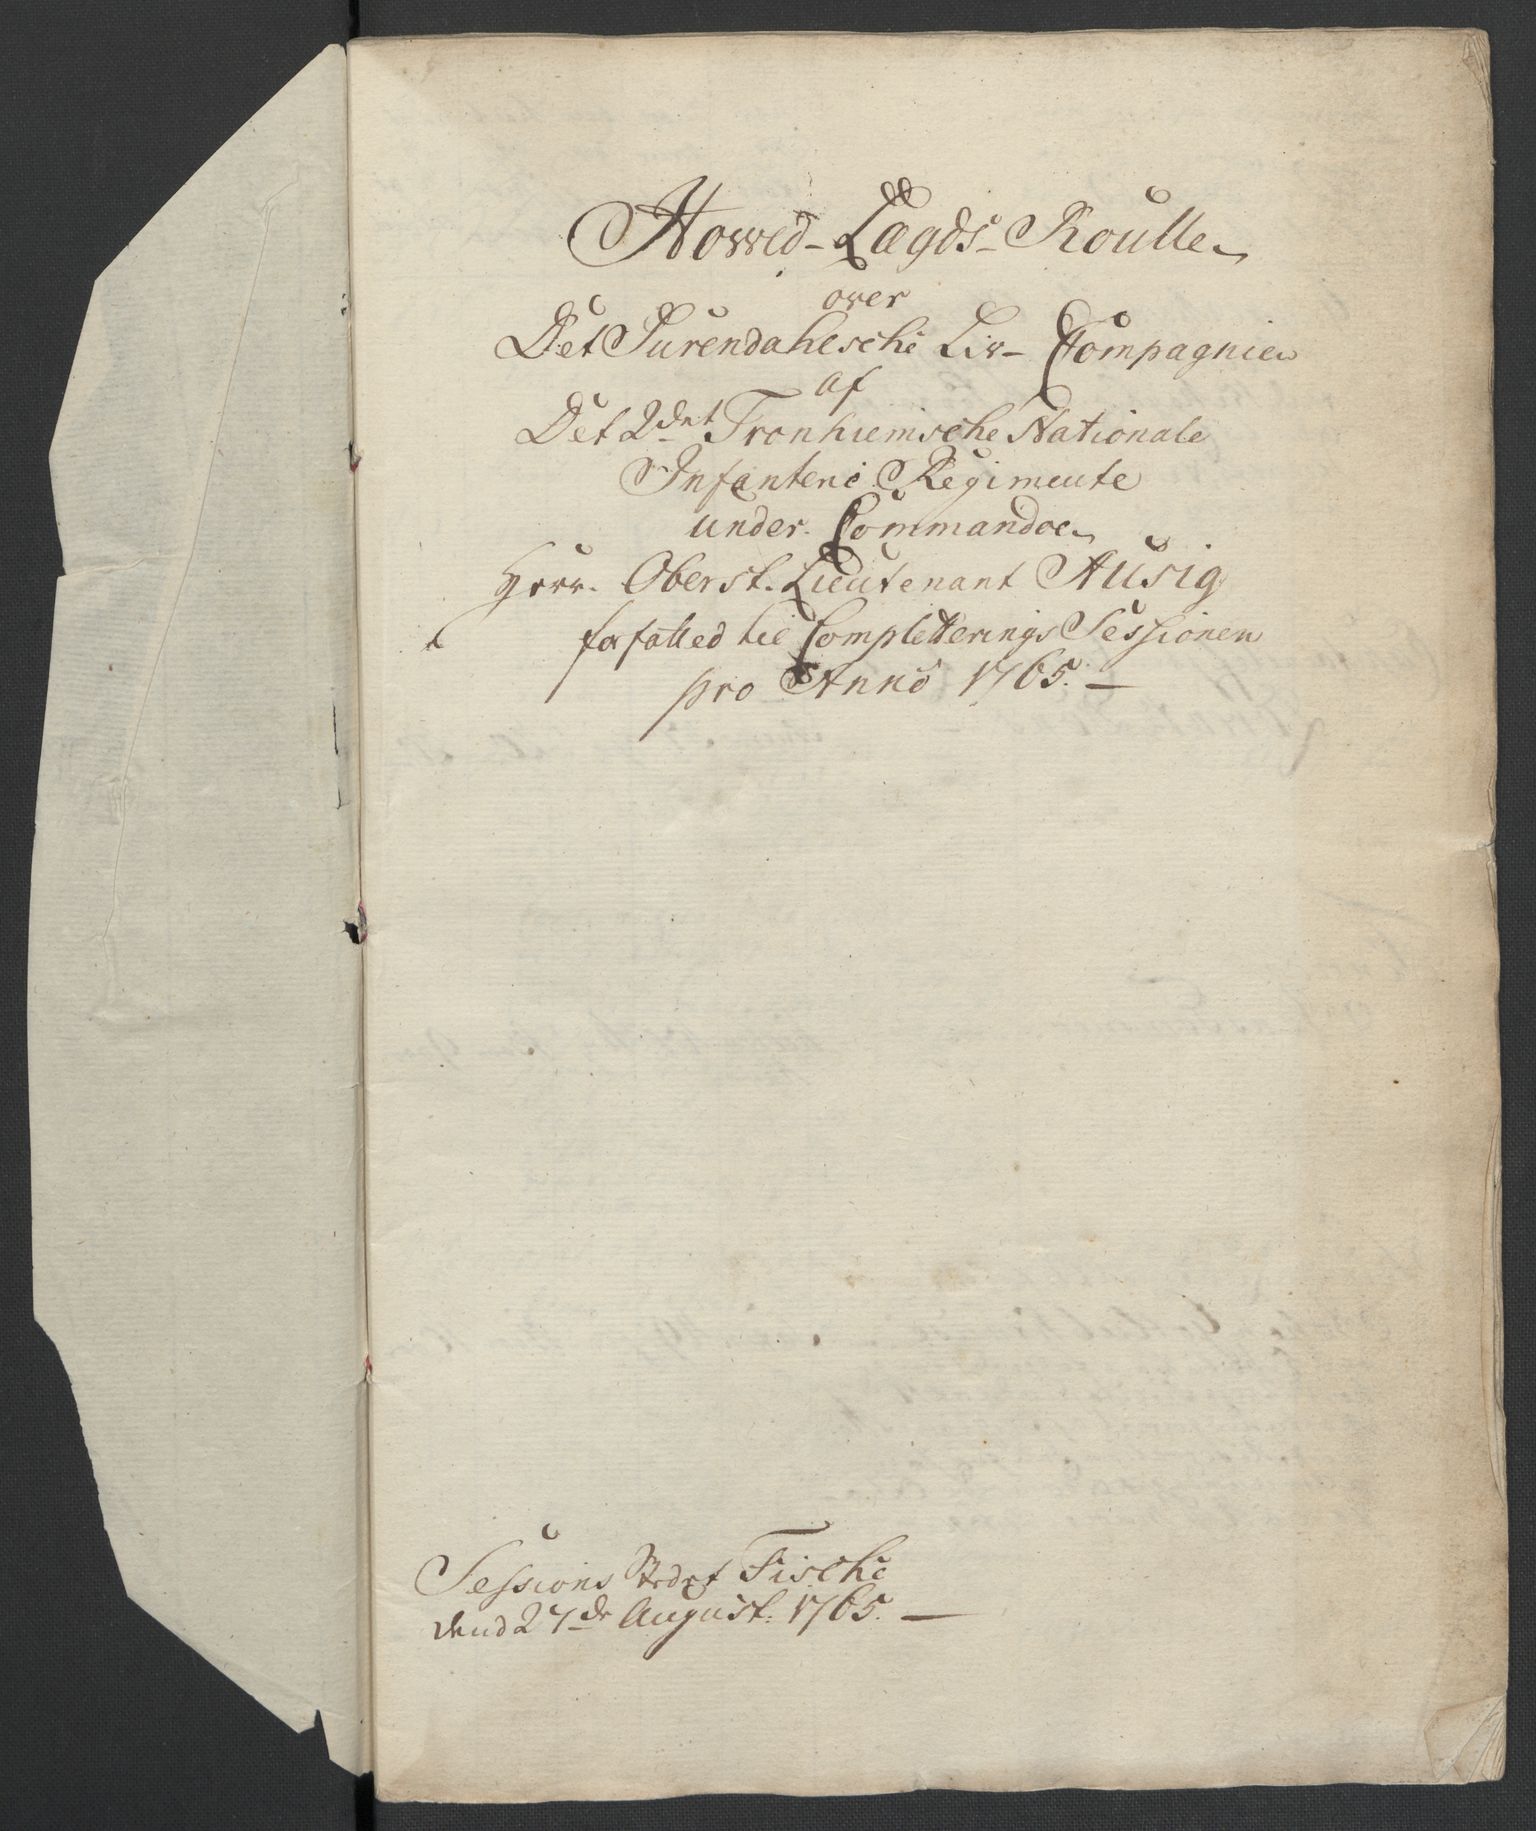 Howed-Lægds-Roulle
over
Det Surendahlsche Liv-Compagnie
af
Det 2det Tronhiemsche Nationale
Infanterie Regimente
under Commandoe
Herr Oberst-Lieutenant Ausig
forfatted til Completterings Sessionen
pro Anno 1765.
Sessions Stedet Fische
dend 27de August: 1765.